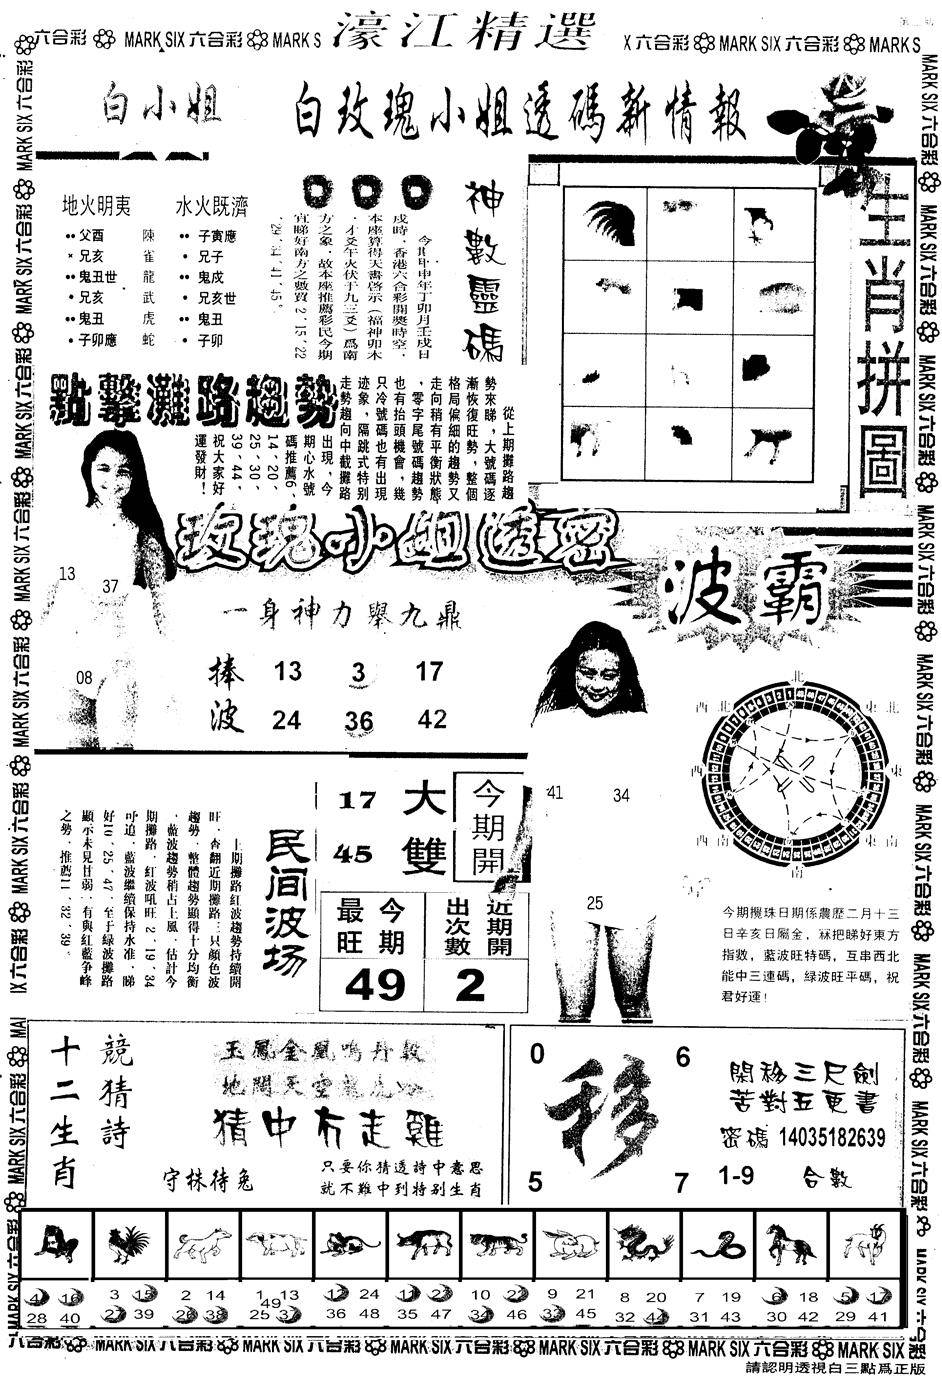 濠江精選
六合彩 MARK SIX 六合彩 MARK S
X 六合彩 MARK SIX 六合彩 MARK S
白小姐
白玫瑰小姐透碼新情報
地火明夷
父酉 陳
兄亥 雀
鬼丑世 龍
兄亥 武
鬼丑 虎
子卯應 蛇
水火既濟
子寅應
兄子
鬼戍
兄亥世
鬼丑
子卯
神數靈碼
今期甲申年丁卯月壬戌日
戌時，香港六合彩開獎時空，
本座算得天書啓示（福神卯木
，才爻午火伏于九三爻）爲南
方之象，故本座推薦彩民今期
宜睇好南方之數買2、15、22
、29、34、41、45。
生肖拼圖
點擊灘路趨勢
從上期攤路趨
勢來睇，大號碼逐
漸恢復旺勢，整個
格局偏細的趨勢又
走向稍有平衡狀態
，零字尾號碼趨勢
也有抬頭機會，幾
只冷號碼也有出現
迹象，隔跳式特别
走勢趨向中截攤路
出現，今
期心水號
碼推薦6、
14、20、
25、30、
39、44，
祝大家好
運發財！
玫瑰小姐透密
13
37
08
一身神力舉九鼎
捧波
13 3 17
24 36 42
波霸
41
34
25
北
東北
東
東南
南
西南
西
西北
今期攪珠日期係農歷二月十三
日辛亥日屬金，冧把睇好東方
指數，藍波旺特碼，互串西北
能中三連碼，綠波旺平碼，祝
君好運！
民间波场
上期攤路紅波趨勢持續開
旺，查翻近期攤路三只顏色波
趨勢，整體趨勢顯得十分均衡
，藍波趨勢稍占上風，估計今
期攤路，紅波吼旺2、19、34
吁追，藍波繼續保持水准，睇
好10、25、47，至于綠波攤路
顯示未見甘弱，有與紅藍争峰
之勢，推薦11、32、39。
17 大
45 雙
今期開
今期最旺
49
近期開出次數
2
十二生肖
競猜詩
玉鳳金凰鳴丹
地闊天空龍虎
猜中冇走雞
守株待兔
只要你猜透詩中意思
就不難中到特别生肖
0 6
移
5 7
閑移三尺劍
苦對五更書
密碼 14035182639
1-9 合數
4 16 3 15 2 14 1 13 12 24 11 23 10 22 9 21 8 20 7 19 6 18 5 17
49
28 40 27 39 26 38 25 37 36 48 35 47 34 46 33 45 32 44 31 43 30 42 29 41
六合彩 MARK SIX 六合彩 MARK SIX 六合彩 MARK SIX 六合彩 MARK SIX 六合彩 MARK SIX 六合彩 MARK SIX 六合彩
請認明透視白三點爲正版